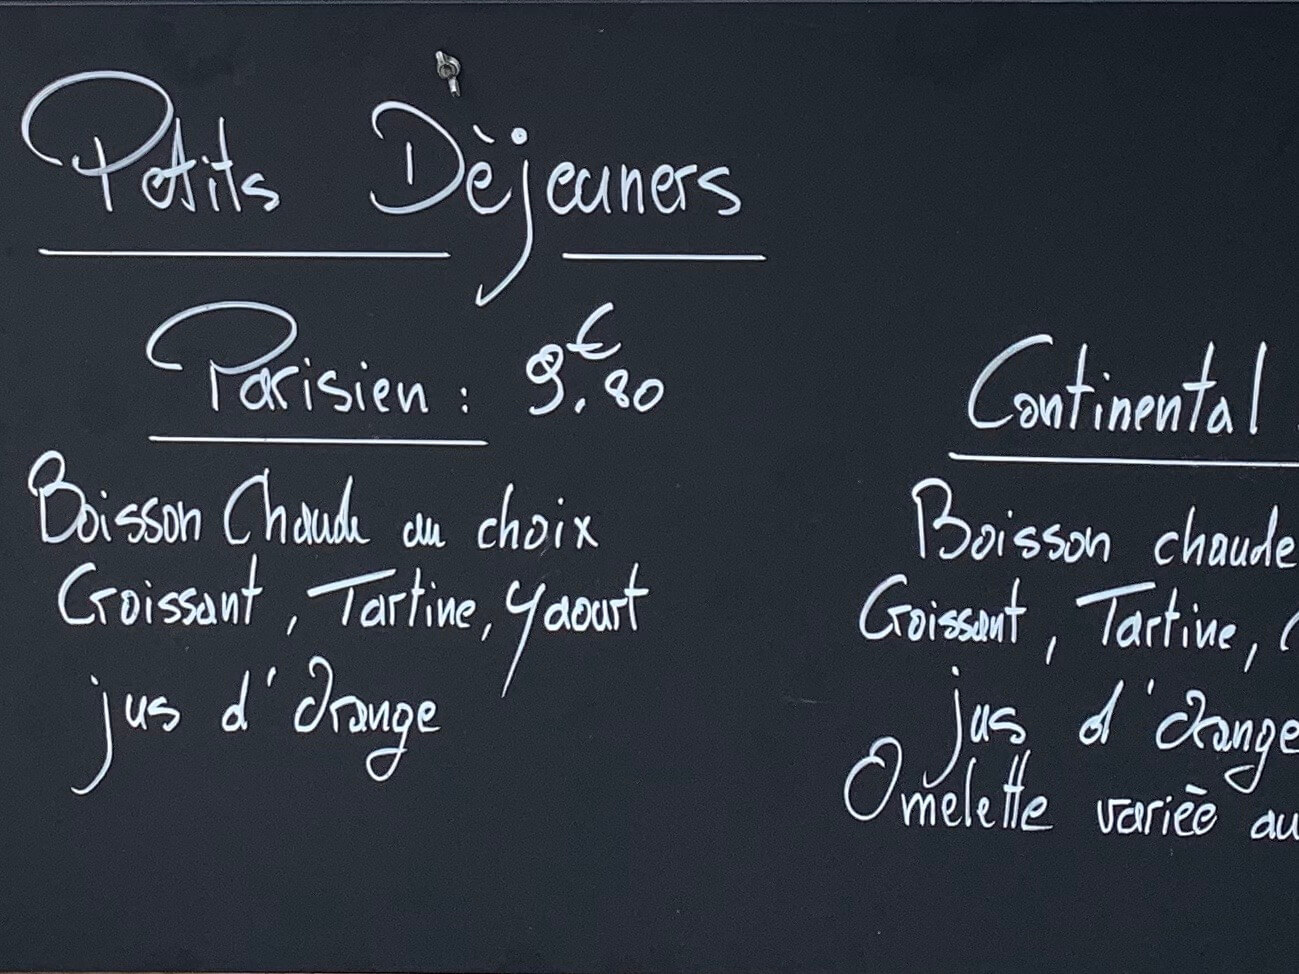 Petits Dèjeuners
Parisien : 9.€80
Boisson Chaude au choix
Croissant, Tartine, Yaourt
jus d'Orange
Continental
Boisson chaude
Croissant, Tartine,
jus d'Orange
Omelette varièe au